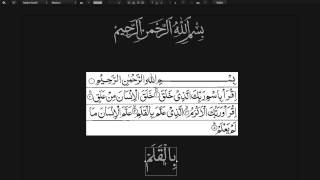 بِسْمِ اللهِ الرَّحْمٰنِ الرَّحِيْمِ
بِسْمِ اللهِ الرَّحْمٰنِ الرَّحِيْمِ
اِقْرَاْ بِاسْمِ رَبِّكَ الَّذِىْ خَلَقَ خَلَقَ الْاِنْسَانَ مِنْ عَلَقٍ
اِقْرَاْ وَرَبُّكَ الْاَكْرَمُ الَّذِىْ عَلَّمَ بِالْقَلَمِ عَلَّمَ الْاِنْسَانَ مَا
لَمْ يَعْلَمْ
بِالْقَلَمِ